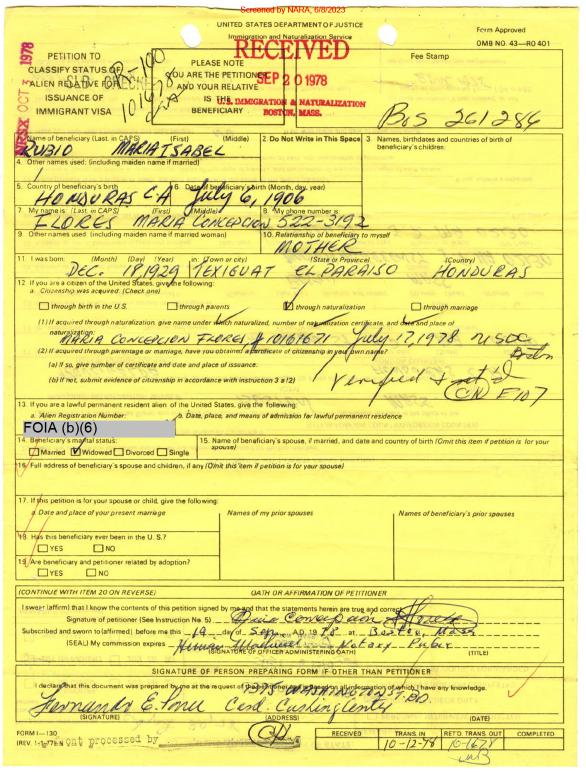 Screened by NARA, 6/8/2023
UNITED STATES DEPARTMENT OF JUSTICE
Immigration and Naturalization Service
Form Approved
OMB NO. 43—RO 401
PETITION TO
CLASSIFY STATUS OF
ALIEN RELATIVE FOR
ISSUANCE OF
IMMIGRANT VISA
R-100
101678
PLEASE NOTE
YOU ARE THE PETITIONER
AND YOUR RELATIVE
IS THE
BENEFICIARY
RECEIVED
SEP 20 1978
U.S. IMMIGRATION & NATURALIZATION
BOSTON, MASS.
OCT 3 1978
Fee Stamp
BoS 261286
1. Name of beneficiary (Last, in CAPS) (First) (Middle)
RUBIO MARIA ISABEL
2. Do Not Write in This Space
3. Names, birthdates and countries of birth of beneficiary's children:
4. Other names used: (including maiden name if married)
5. Country of beneficiary's birth
HONDURAS C A
6. Date of beneficiary's birth (Month, day, year)
July 6, 1906
7. My name is: (Last, in CAPS) (First) (Middle)
FLORES MARIA CONCEPCION
8. My phone number is
522-3192
9. Other names used: (including maiden name if married woman)
10. Relationship of beneficiary to myself
MOTHER
11. I was born: (Month) (Day) (Year) in: (Town or city) (State or Province) (Country)
DEC. 18, 1929 TEXIGUAT EL PARAISO HONDURAS
12. If you are a citizen of the United States, give the following:
a. Citizenship was acquired: (Check one)
through birth in the U.S. through parents through naturalization through marriage
(1) If acquired through naturalization, give name under which naturalized, number of naturalization certificate, and date and place of
naturalization:
MARIA CONCEPCION FLORES # 10161671 July 17, 1978 USDC
Boston
(2) If acquired through parentage or marriage, have you obtained a certificate of citizenship in your own name?
(a) If so, give number of certificate and date of place of issuance:
(b) If not, submit evidence of citizenship in accordance with instruction 3 a (2)
Verified & ret'd
13. If you are a lawful permanent resident alien of the United States, give the following:
a. Alien Registration Number: b. Date, place, and means of admission for lawful permanent residence
FOIA (b)(6)
14. Beneficiary's marital status:
Married Widowed Divorced Single
15. Name of beneficiary's spouse, if married, and date and country of birth (Omit this item if petition is for your spouse)
16. Full address of beneficiary's spouse and children, if any (Omit this item if petition is for your spouse)
17. If this petition is for your spouse or child, give the following:
a. Date and place of your present marriage Names of my prior spouses Names of beneficiary's prior spouses
18. Has this beneficiary ever been in the U.S.?
YES NO
19. Are beneficiary and petitioner related by adoption?
YES NO
(CONTINUE WITH ITEM 20 ON REVERSE) OATH OR AFFIRMATION OF PETITIONER
I swear (affirm) that I know the contents of this petition signed by me and that the statements herein are true and correct.
Signature of petitioner (See Instruction No. 5)
Subscribed and sworn to (affirmed) before me this 19 day of Sep, A.D. 1978 at Boston, Mass
(SEAL) My commission expires Notary Public
(SIGNATURE OF OFFICER ADMINISTERING OATH) (TITLE)
SIGNATURE OF PERSON PREPARING FORM IF OTHER THAN PETITIONER
I declare that this document was prepared by me at the request of the petitioner and is based on all information of which I have any knowledge.
1375 WASHINGTON ST. BO.
Fernando E. Card. Cushing Center
(SIGNATURE) (ADDRESS) (DATE)
FORM I—130
(REV. 1-1-77)N
Front processed by
RECEIVED TRANS. IN RET'D. TRANS. OUT COMPLETED
10-12-78 10-1678